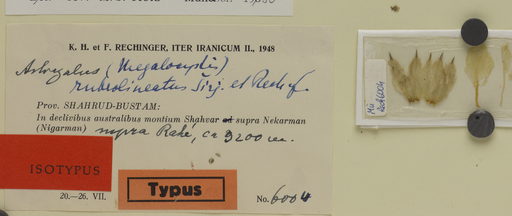 K. H. et F. RECHINGER, ITER IRANICUM II., 1948
Astragalus (Megalocystis)
rubrolineatus Širj. et Rech. f.
Prov. SHAHRUD-BUSTAM:
In declivibus australibus montium Shahvar et supra Nekarman
(Nigarman) supra Rahé, ca 3200 m.
ISOTYPUS
20.—26. VII.
Typus
No. 6004
Rech 6004